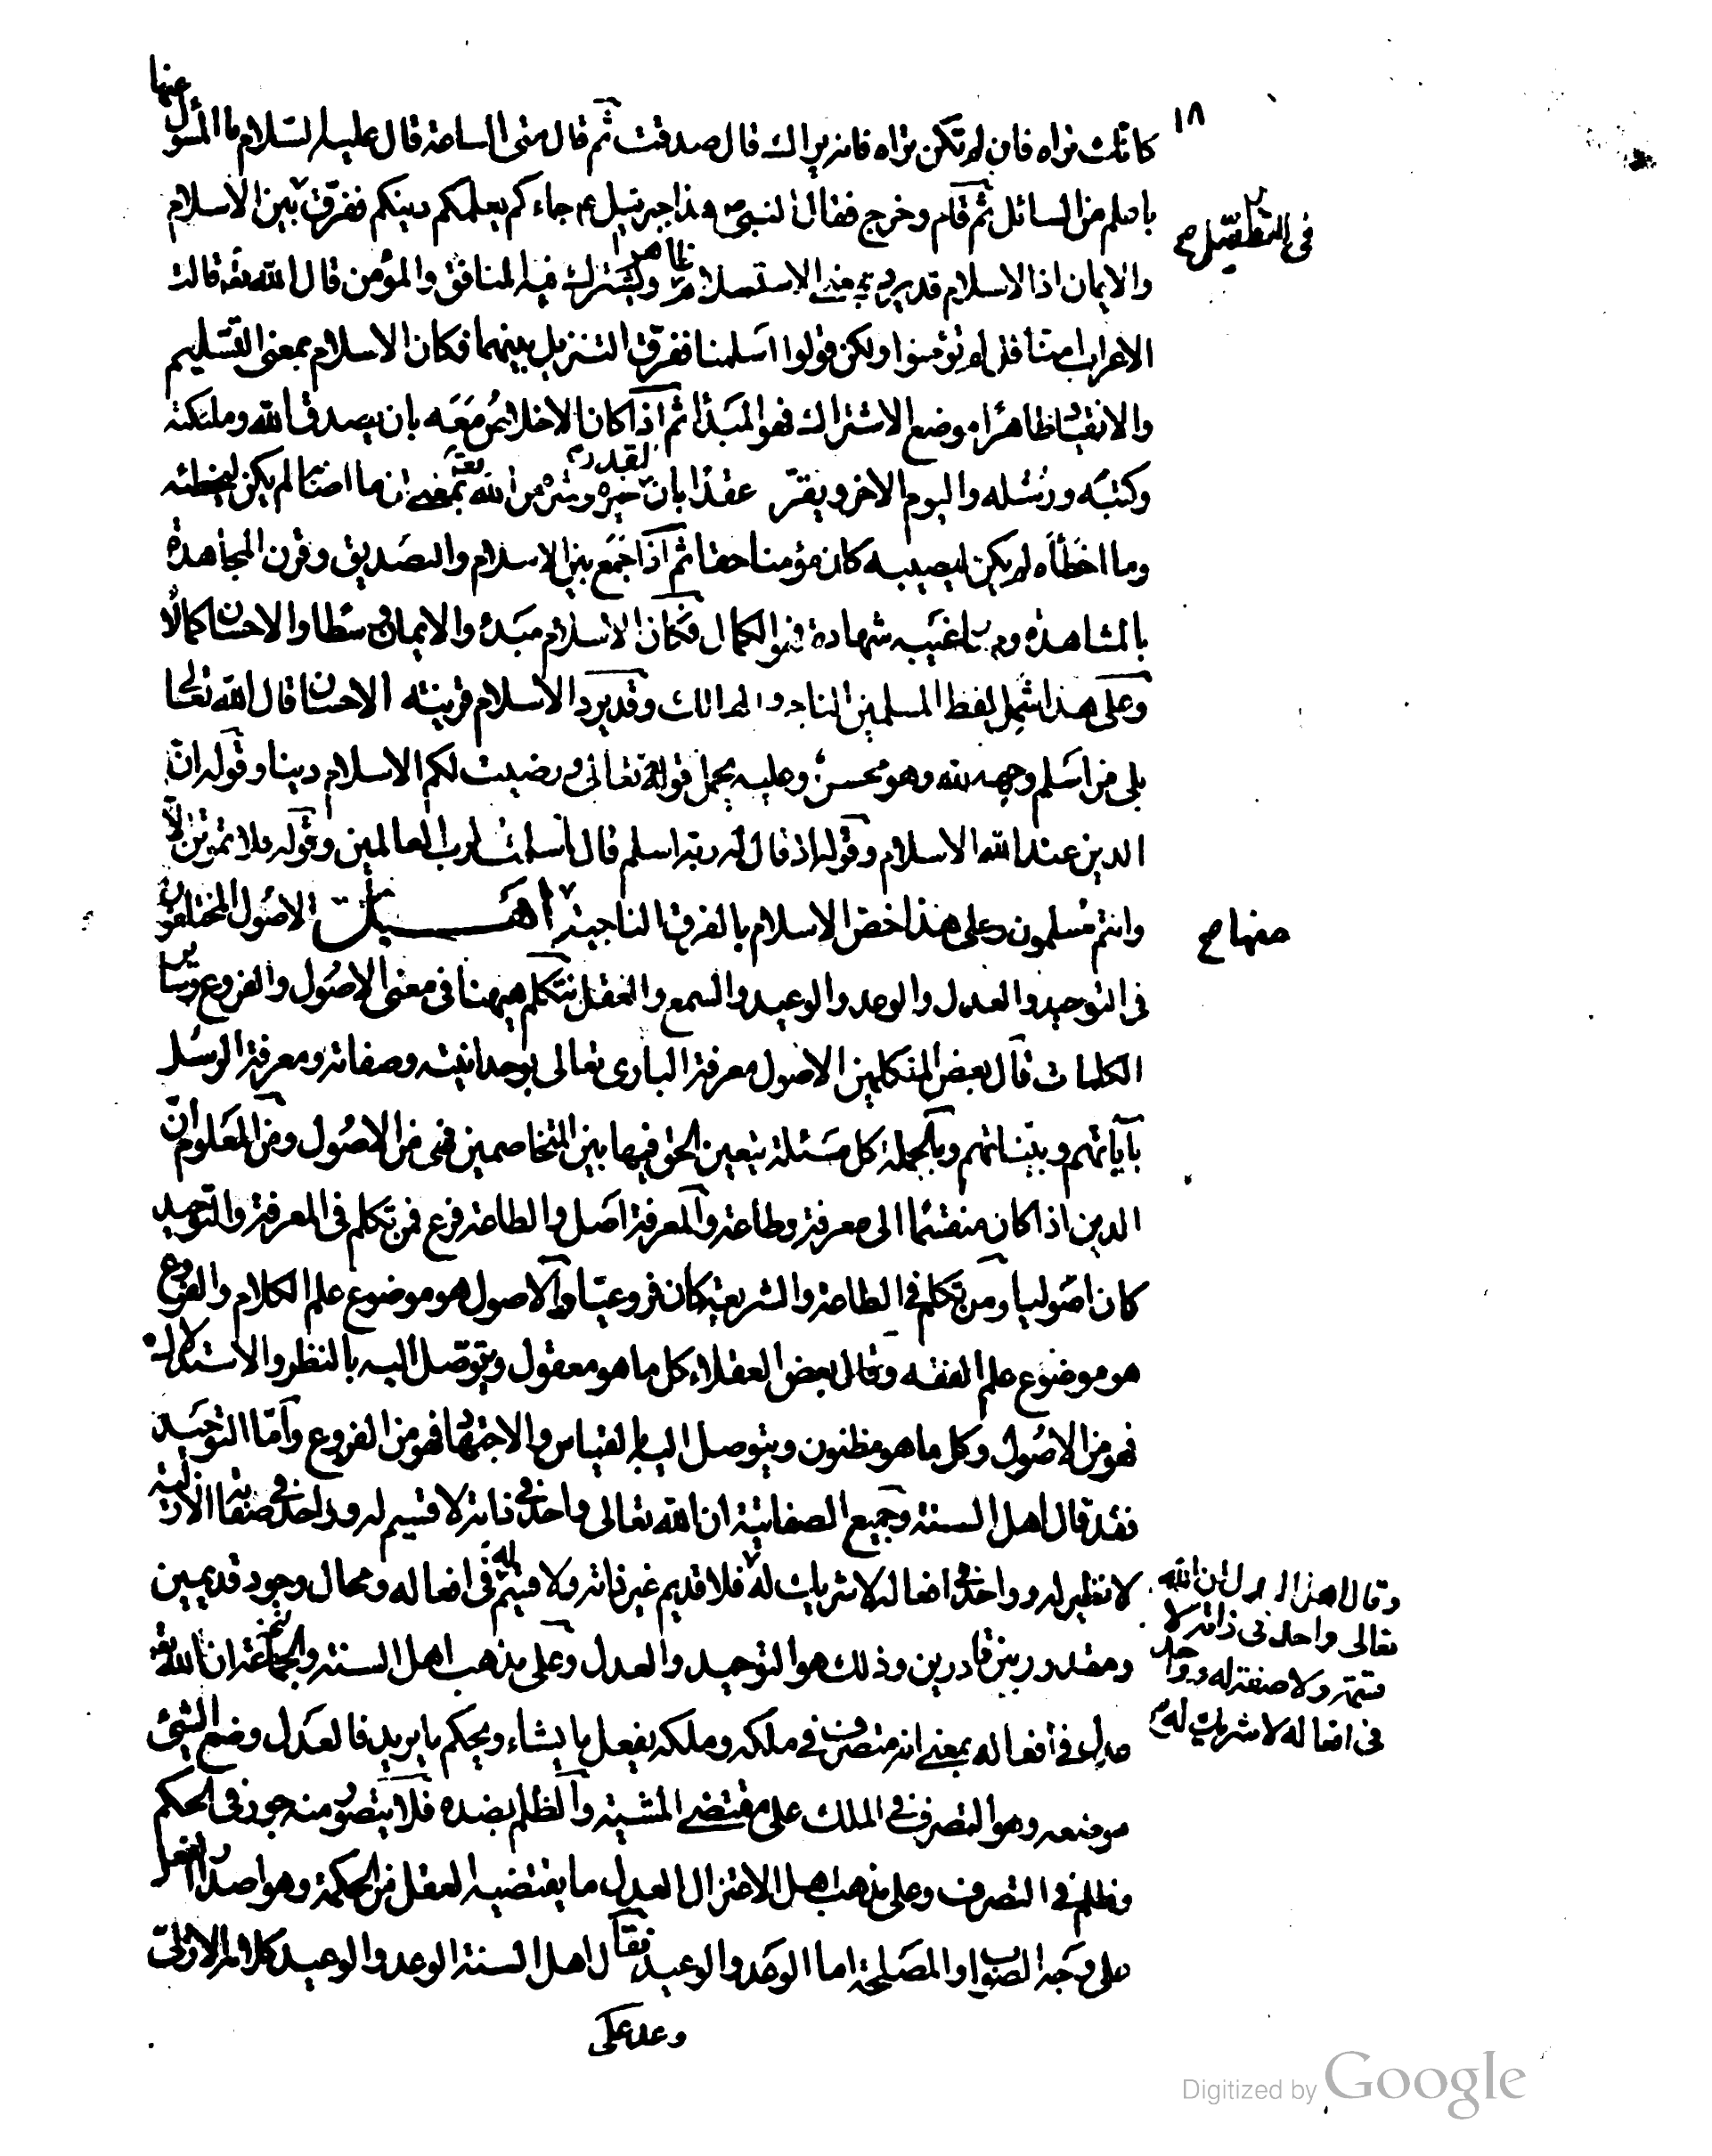 ١٨
كانك تراه فان لم تكن تراه فانه يراك قال صدقت ثم قال متى الساعة قال عليه السلام ما المسؤل عنها
باعلم من السائل ثم قام وخرج فقال النبي هذا جبرئيل جاءكم يعلمكم دينكم ففرق بين الاسلام
في التفسير صح
والايمان اذ الاسلام قد يرد بمعنى الاستسلام ظاهرا ويشترك فيه المنافق والمؤمن قال الله تعه قالت
الاعراب امنا قل لم تؤمنوا ولكن قولوا اسلمنا ففرق التنزيل بينهما فكان الاسلام بمعنى التسليم
والانقياد ظاهرا موضع الاشتراك فهو المبدأ ثم اذا كان الاخلاص معه بان يصدق بالله وملئكته
وكتبه ورسله واليوم الاخر ويقر عقدا بان القدر خيره وشره من الله تعه بمعنى ان ما اصابنا لم يكن ليخطئه
وما اخطأه لم يكن ليصيبه كان مؤمنا حقا ثم اذا جمع بين الاسلام والتصديق وقرن المجاهدة
بالمشاهدة وصار غيبه شهادة فهو الكمال فكان الاسلام مبدء والايمان وسطا والاحسان كمالا
وعلى هذا شمل لفظ المسلمين الناجي والهالك وقد يرد الاسلام قرينته الاحسان قال الله تعالى
بلى من اسلم وجهه لله وهو محسن وعليه يحمل قوله تعالى ورضيت لكم الاسلام دينا وقوله ان
الدين عند الله الاسلام وقوله اذ قال له ربه اسلم قال اسلمت لرب العالمين وقوله فلا تموتن الا
وانتم مسلمون وعلى هذا خص الاسلام بالفرقة الناجية اهل الاصول المختلفون
في التوحيد والعدل والوعد والوعيد والسمع والعقل نتكلم ههنا في معنى الاصول والفروع وساير
الكلمات قال بعض المتكلمين الاصول معرفة البارى تعالى بوحدانيته وصفاته ومعرفة الرسل
بآياتهم وبيناتهم وبالجملة كل مسئلة يتعين الحق فيها بين المتخاصمين فهى من الاصول ومن المعلوم ان
الدين اذا كان منقسما الى معرفة وطاعة والمعرفة اصل والطاعة فرع فمن تكلم في المعرفة والتوحيد
كان اصوليا ومن تكلم في الطاعة والشريعة كان فروعيا والاصول هو موضوع علم الكلام والفروع
هو موضوع علم الفقه وقال بعض العقلاء كل ما هو معقول ويتوصل اليه بالنظر والاستدلال
فهو من الاصول وكل ما هو مظنون ويتوصل اليه بالقياس والاجتهاد فهو من الفروع واما التوحيد
فقد قال اهل السنة وجميع الصفاتية ان الله تعالى واحد في ذاته لا قسيم له وواحد في صفاته الازلية
لا نظير له وواحد في افعاله لا شريك له فلا قديم غير ذاته ولا قسيم له في افعاله ومحال وجود قديمين
وقال اهل العدل ان الله
تعالى واحد في ذاته لا
قسمة ولا صفة له وواحد
في افعاله لا شريك له
ومقدور بين قادرين وذلك هو التوحيد والعدل وعلى مذهب اهل السنة والجماعة ان الله تعه
عدل في افعاله بمعنى انه متصرف في ملكه وملكه يفعل ما يشاء ويحكم ما يريد فالعدل وضع الشئ
موضعه وهو التصرف في الملك على مقتضى المشية والظلم بضده فلا يتصور منه جور في الحكم
وظلم في التصرف وعلى مذهب اهل الاعتزال العدل ما يقتضيه العقل من الحكمة وهو اصدار الفعل
على وجه الصواب والمصلحة اما الوعد والوعيد فقال اهل السنة الوعد والوعيد كلامه الازلى
وعد على
Digitized by Google